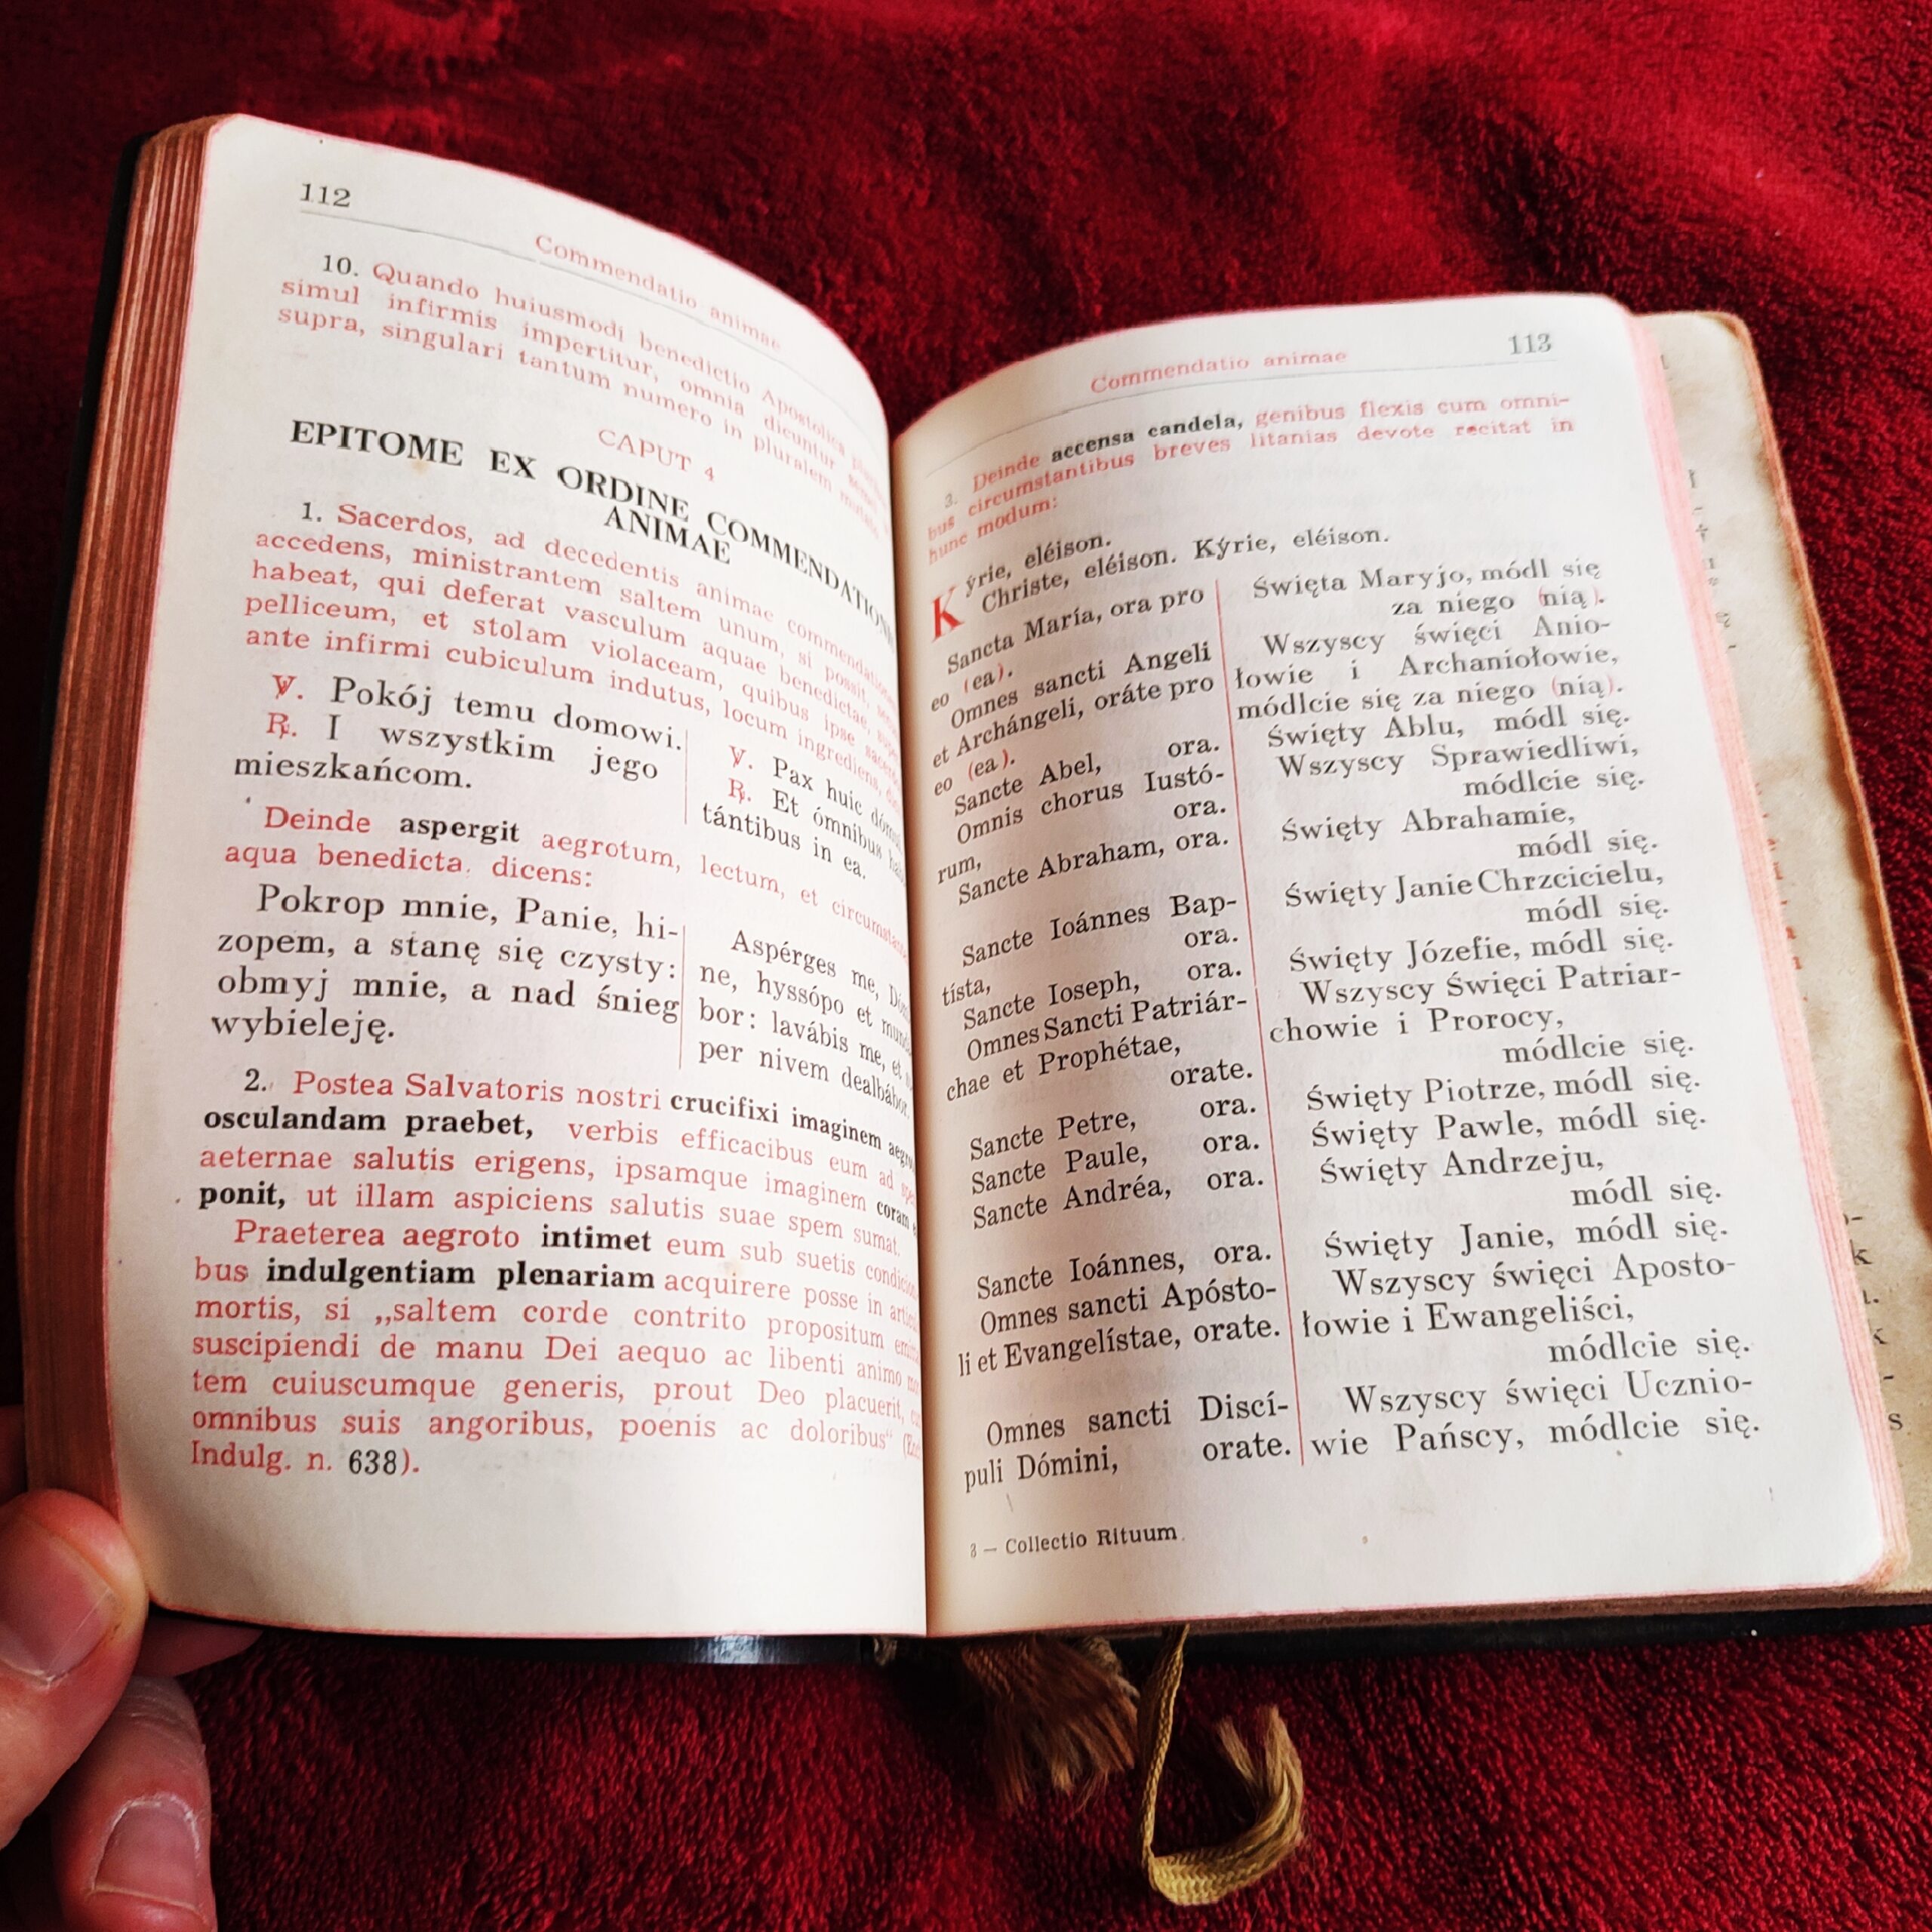 112
Commendatio animae
10. Quando huiusmodi benedictio Apostolica
simul infirmis impertitur, omnia dicuntur
supra, singulari tantum numero in pluralem
CAPUT 4
EPITOME EX ORDINE COMMENDATIONIS
ANIMAE
1. Sacerdos, ad decedentis animae commendationem
accedens, ministrantem saltem unum, si possit,
habeat, qui deferat vasculum aquae benedictae,
pelliceum, et stolam violaceam, quibus ipse
ante infirmi cubiculum indutus, locum ingrediens,
℣. Pokój temu domowi.
℟. I wszystkim jego
mieszkańcom.
℣. Pax huic
℟. Et ómnibus
tántibus in ea.
Deinde aspergit aegrotum, lectum, et
aqua benedicta. dicens:
Pokrop mnie, Panie, hi-
zopem, a stanę się czysty:
obmyj mnie, a nad śnieg
wybieleję.
Aspérges me,
ne, hyssópo et
bor: lavábis me, et
per nivem dealbábor.
2. Postea Salvatoris nostri crucifixi imaginem
osculandam praebet, verbis efficacibus eum ad
aeternae salutis erigens, ipsamque imaginem coram
ponit, ut illam aspiciens salutis suae spem sumat.
Praeterea aegroto intimet eum sub suetis
bus indulgentiam plenariam acquirere posse in
mortis, si „saltem corde contrito propositum
suscipiendi de manu Dei aequo ac libenti animo
tem cuiuscumque generis, prout Deo placuerit,
omnibus suis angoribus, poenis ac doloribus“
Indulg. n. 638).
Commendatio animae
113
3. Deinde accensa candela, genibus flexis cum omni-
bus circumstantibus breves litanias devote recitat in
hunc modum:
Kýrie, eléison.
Christe, eléison. Kýrie, eléison.
Sancta María, ora pro
eo (ea).
Omnes sancti Angeli
et Archángeli, oráte pro
eo (ea).
Sancte Abel, ora.
Omnis chorus Iustó-
rum, ora.
Sancte Abraham, ora.
Sancte Ioánnes Bap-
tísta, ora.
Sancte Ioseph, ora.
Omnes Sancti Patriár-
chae et Prophétae,
orate.
Sancte Petre, ora.
Sancte Paule, ora.
Sancte Andréa, ora.
Sancte Ioánnes, ora.
Omnes sancti Apósto-
li et Evangelístae, orate.
Omnes sancti Discí-
puli Dómini, orate.
Święta Maryjo, módl się
za niego (nią).
Wszyscy święci Anio-
łowie i Archaniołowie,
módlcie się za niego (nią).
Święty Ablu, módl się.
Wszyscy Sprawiedliwi,
módlcie się.
Święty Abrahamie,
módl się.
Święty Janie Chrzcicielu,
módl się.
Święty Józefie, módl się.
Wszyscy Święci Patriar-
chowie i Prorocy,
módlcie się.
Święty Piotrze, módl się.
Święty Pawle, módl się.
Święty Andrzeju,
módl się.
Święty Janie, módl się.
Wszyscy święci Aposto-
łowie i Ewangeliści,
módlcie się.
Wszyscy święci Ucznio-
wie Pańscy, módlcie się.
8 — Collectio Rituum